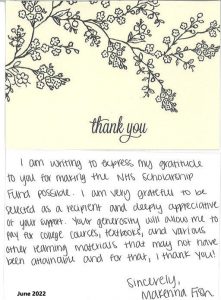 thank you
I am writing to express my gratitude
to you for making the NHS Scholarship
Fund possible. I am very grateful to be
selected as a recipient and deeply appreciative
of your support. Your generosity will allow me to
pay for college courses, textbooks, and various
other learning materials that may not have
been attainable and for that, I thank you!
Sincerely,
Makenna Fish
June 2022